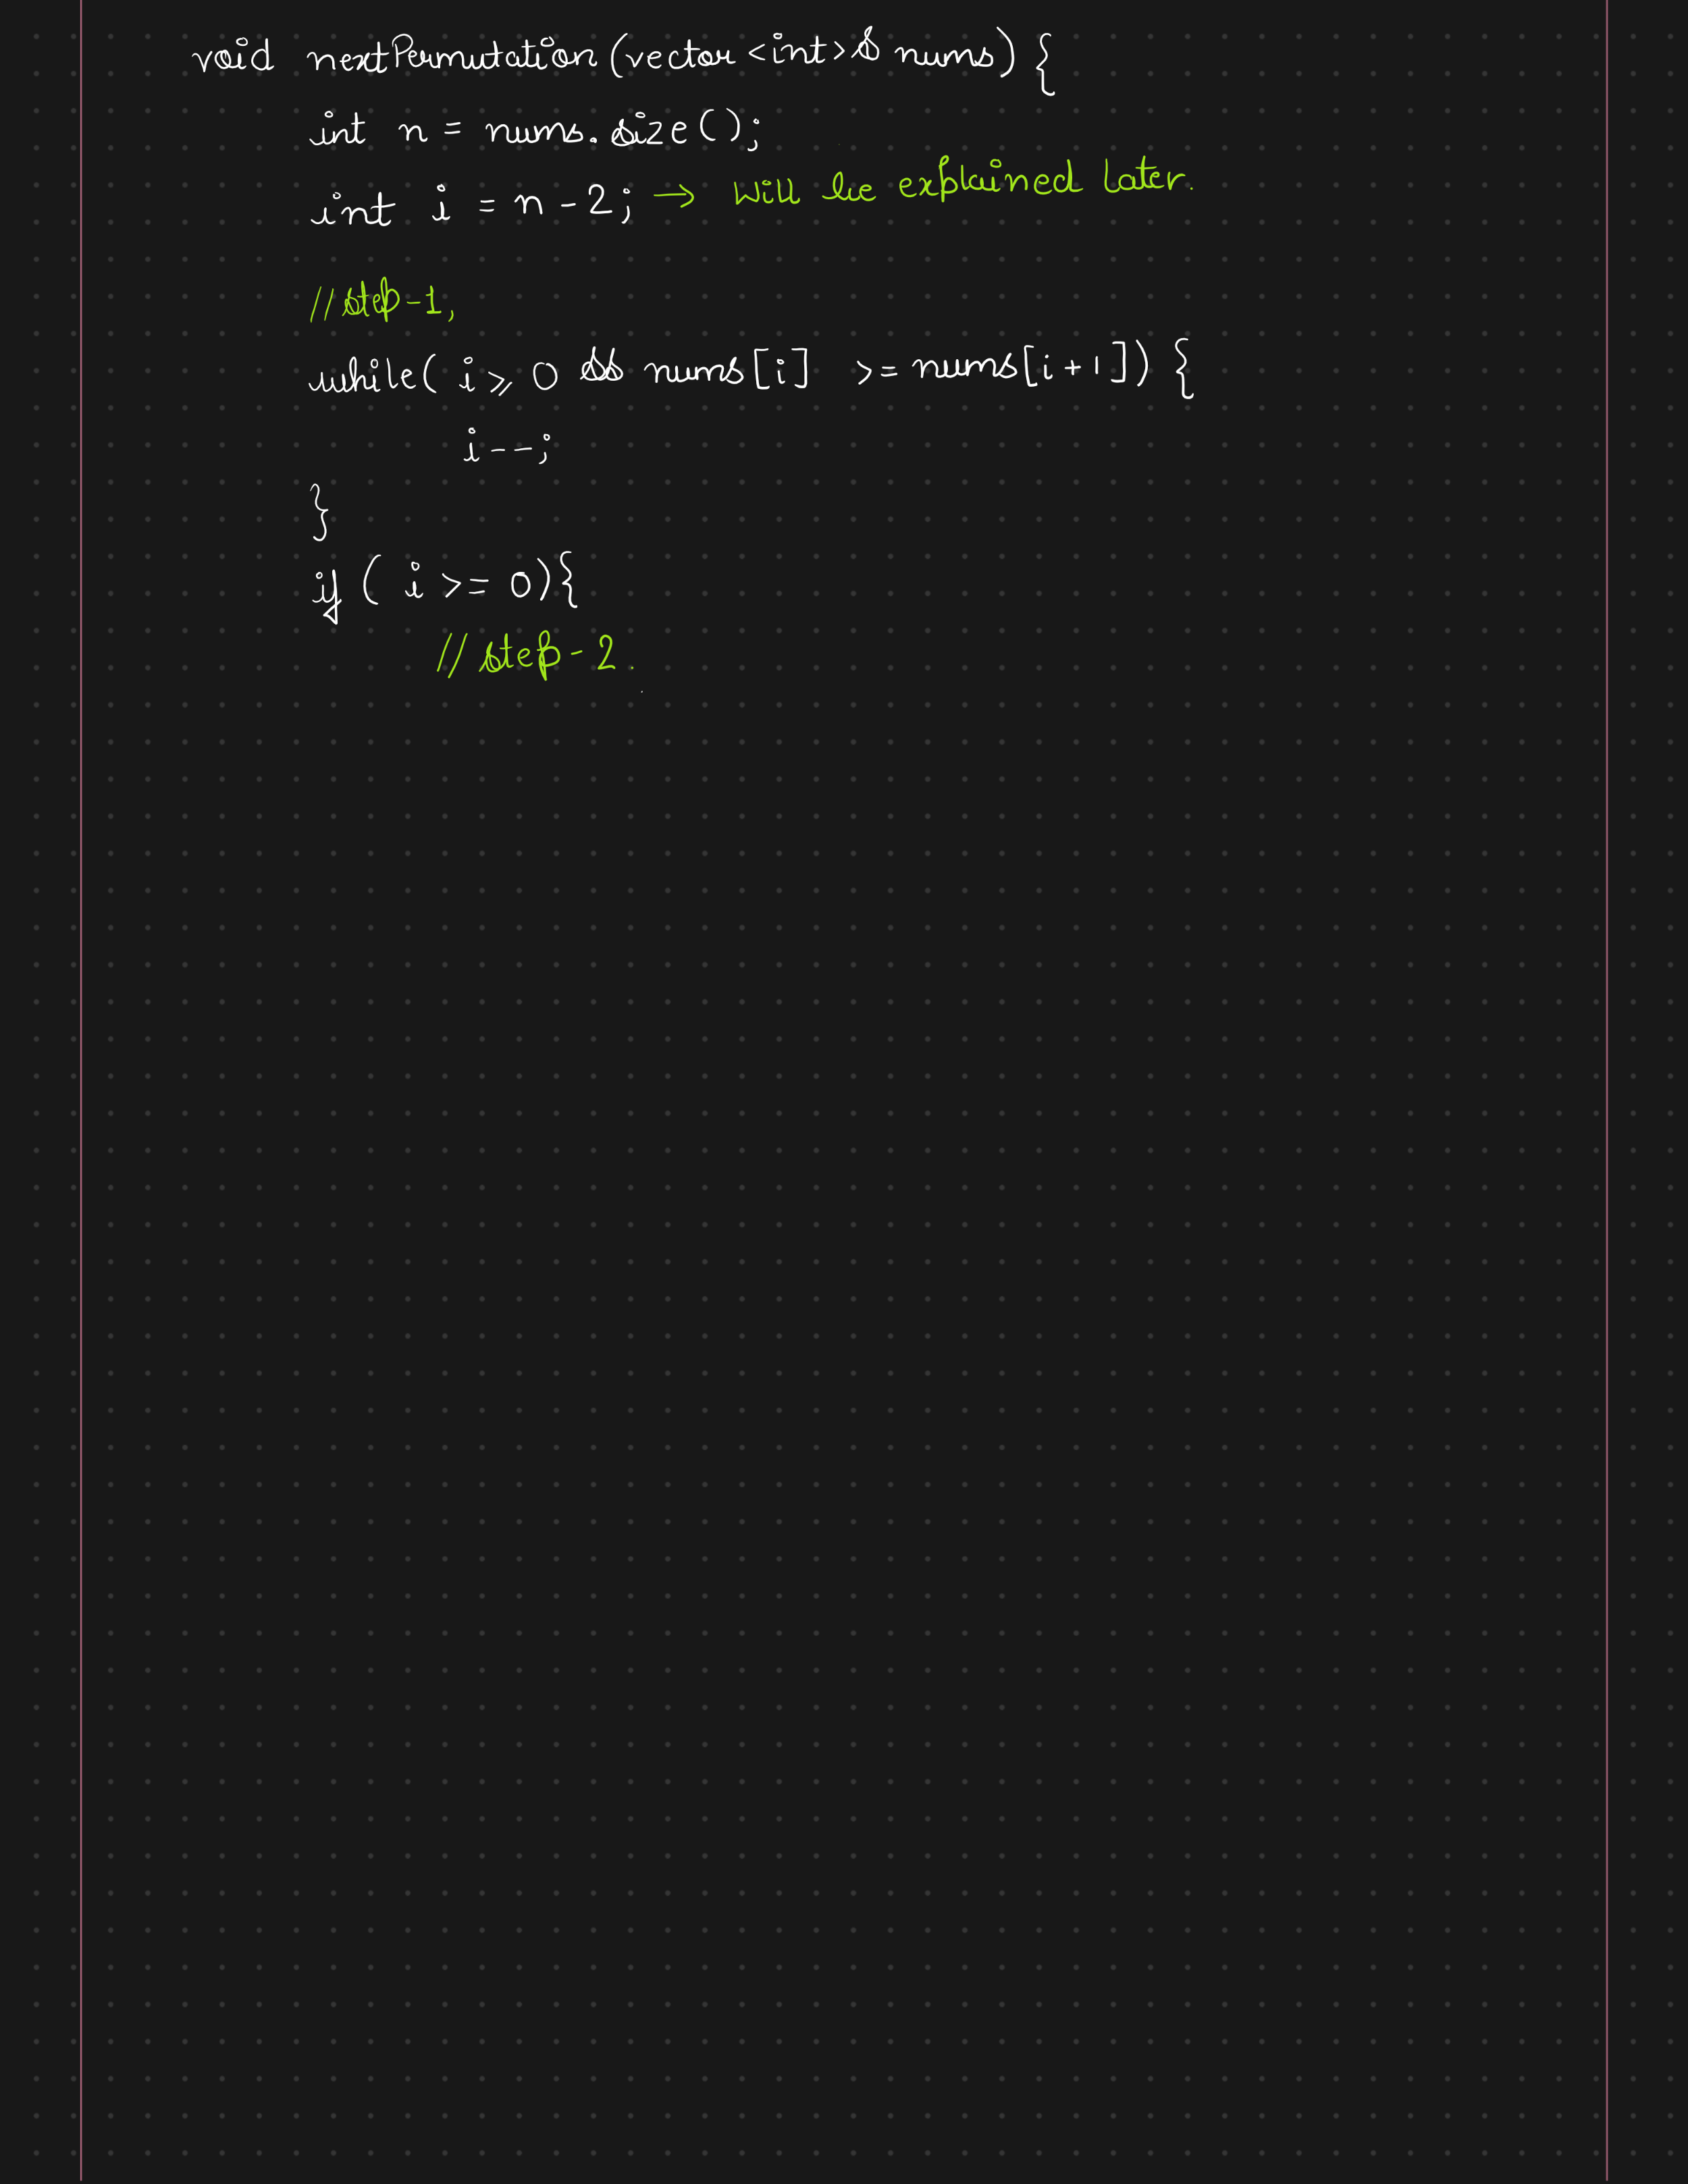 void nextPermutation(vector<int>& nums) {
int n = nums.size();
int i = n - 2; → Will be explained later.
// step-1,
while( i ⩾ 0 && nums[i] >= nums[i+1]) {
i--;
}
if ( i >= 0){
// step-2.